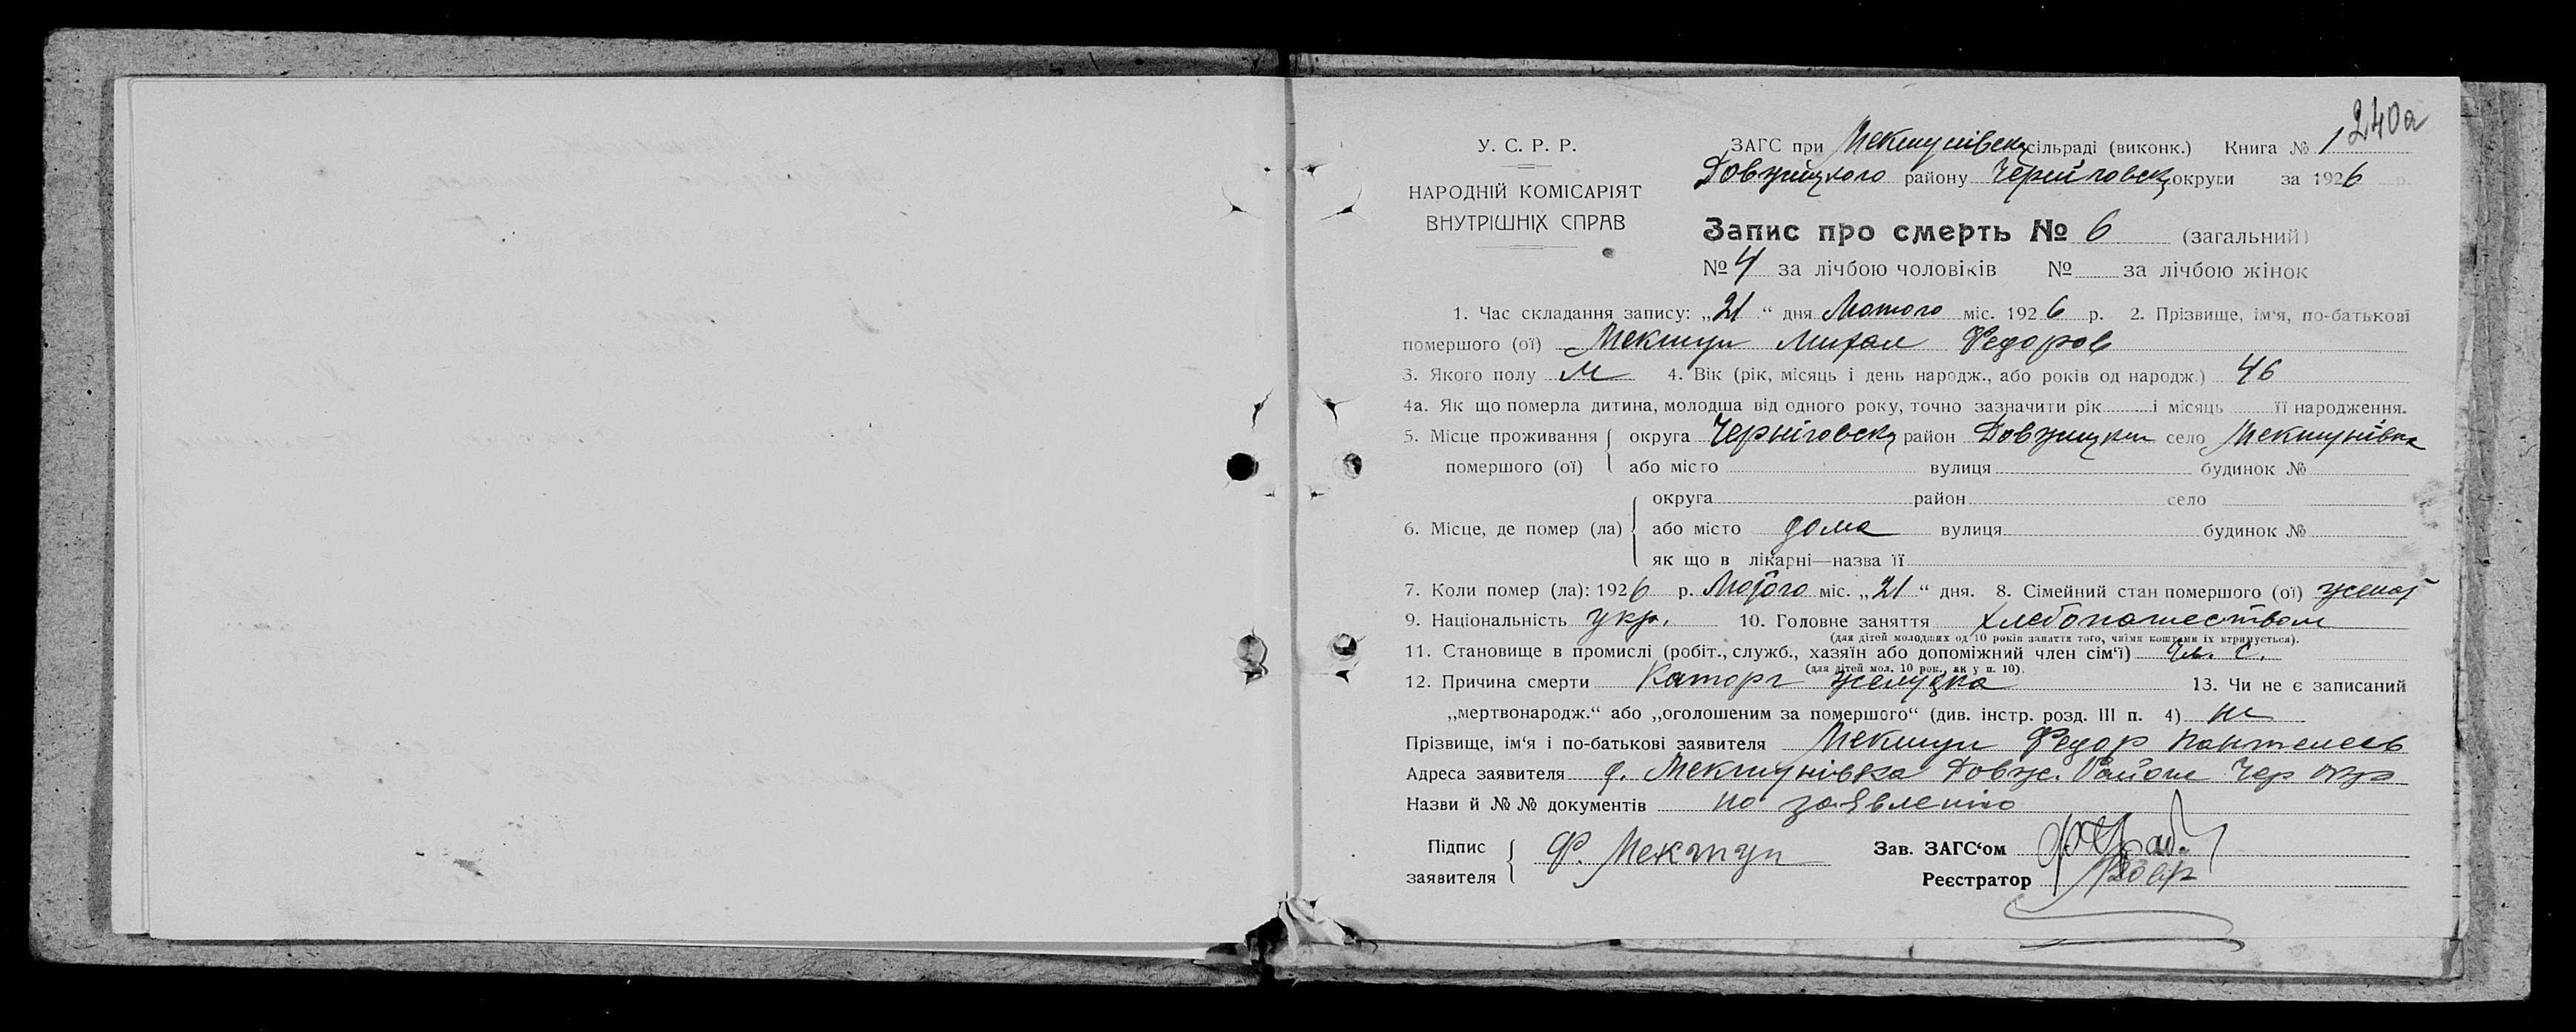 240а
У. С. Р. Р.
НАРОДНІЙ КОМІСАРІЯТ
ВНУТРІШНІХ СПРАВ
ЗАГС при Мекшунівськ сільраді (виконк.) Книга № 1
Довжицкого району Черніговск округи за 1926 р.
Запис про смерть № 6 (загальний)
№ 4 за лічбою чоловіків № за лічбою жінок
1. Час складання запису: „21“ дня Лютого міс. 1926 р. 2. Прізвище, ім‘я, по-батькові
помершого (ої) Мекшун Михал Федоров
3. Якого полу М 4. Вік (рік, місяць і день народж., або років од народж.) 46
4а. Як що померла дитина, молодша від одного року, точно зазначити рік і місяць її народження.
5. Місце проживання округа Черніговск район Довжицкий село Мекшунівка
помершого (ої) або місто вулиця будинок №
округа район село
6. Місце, де помер (ла) або місто дома вулиця будинок №
як що в лікарні—назва її
7. Коли помер (ла): 1926 р. Лютого міс. „21“ дня. 8. Сімейний стан помершого (ої) женат
9. Національність укр. 10. Головне заняття хлебопашеством
(для дітей молодших од 10 років заняття того, чиїми коштами їх втримується).
11. Становище в промислі (робіт., служб., хазяїн або допоміжний член сім‘ї) Чл. С.
(для дітей мол. 10 рок., як у п. 10).
12. Причина смерти Каторг желудка 13. Чи не є записаний
„мертвонародж.“ або „оголошеним за помершого“ (див. інстр. розд. III п. 4) не
Прізвище, ім‘я і по-батькові заявителя Мекшун Федор Пантелеев
Адреса заявителя Мекшунівка Довж. Район Чер окр
Назви й №№ документів по заявленію
Підпис Ф. Мекшун Зав. ЗАГС‘ом
заявителя Реєстратор